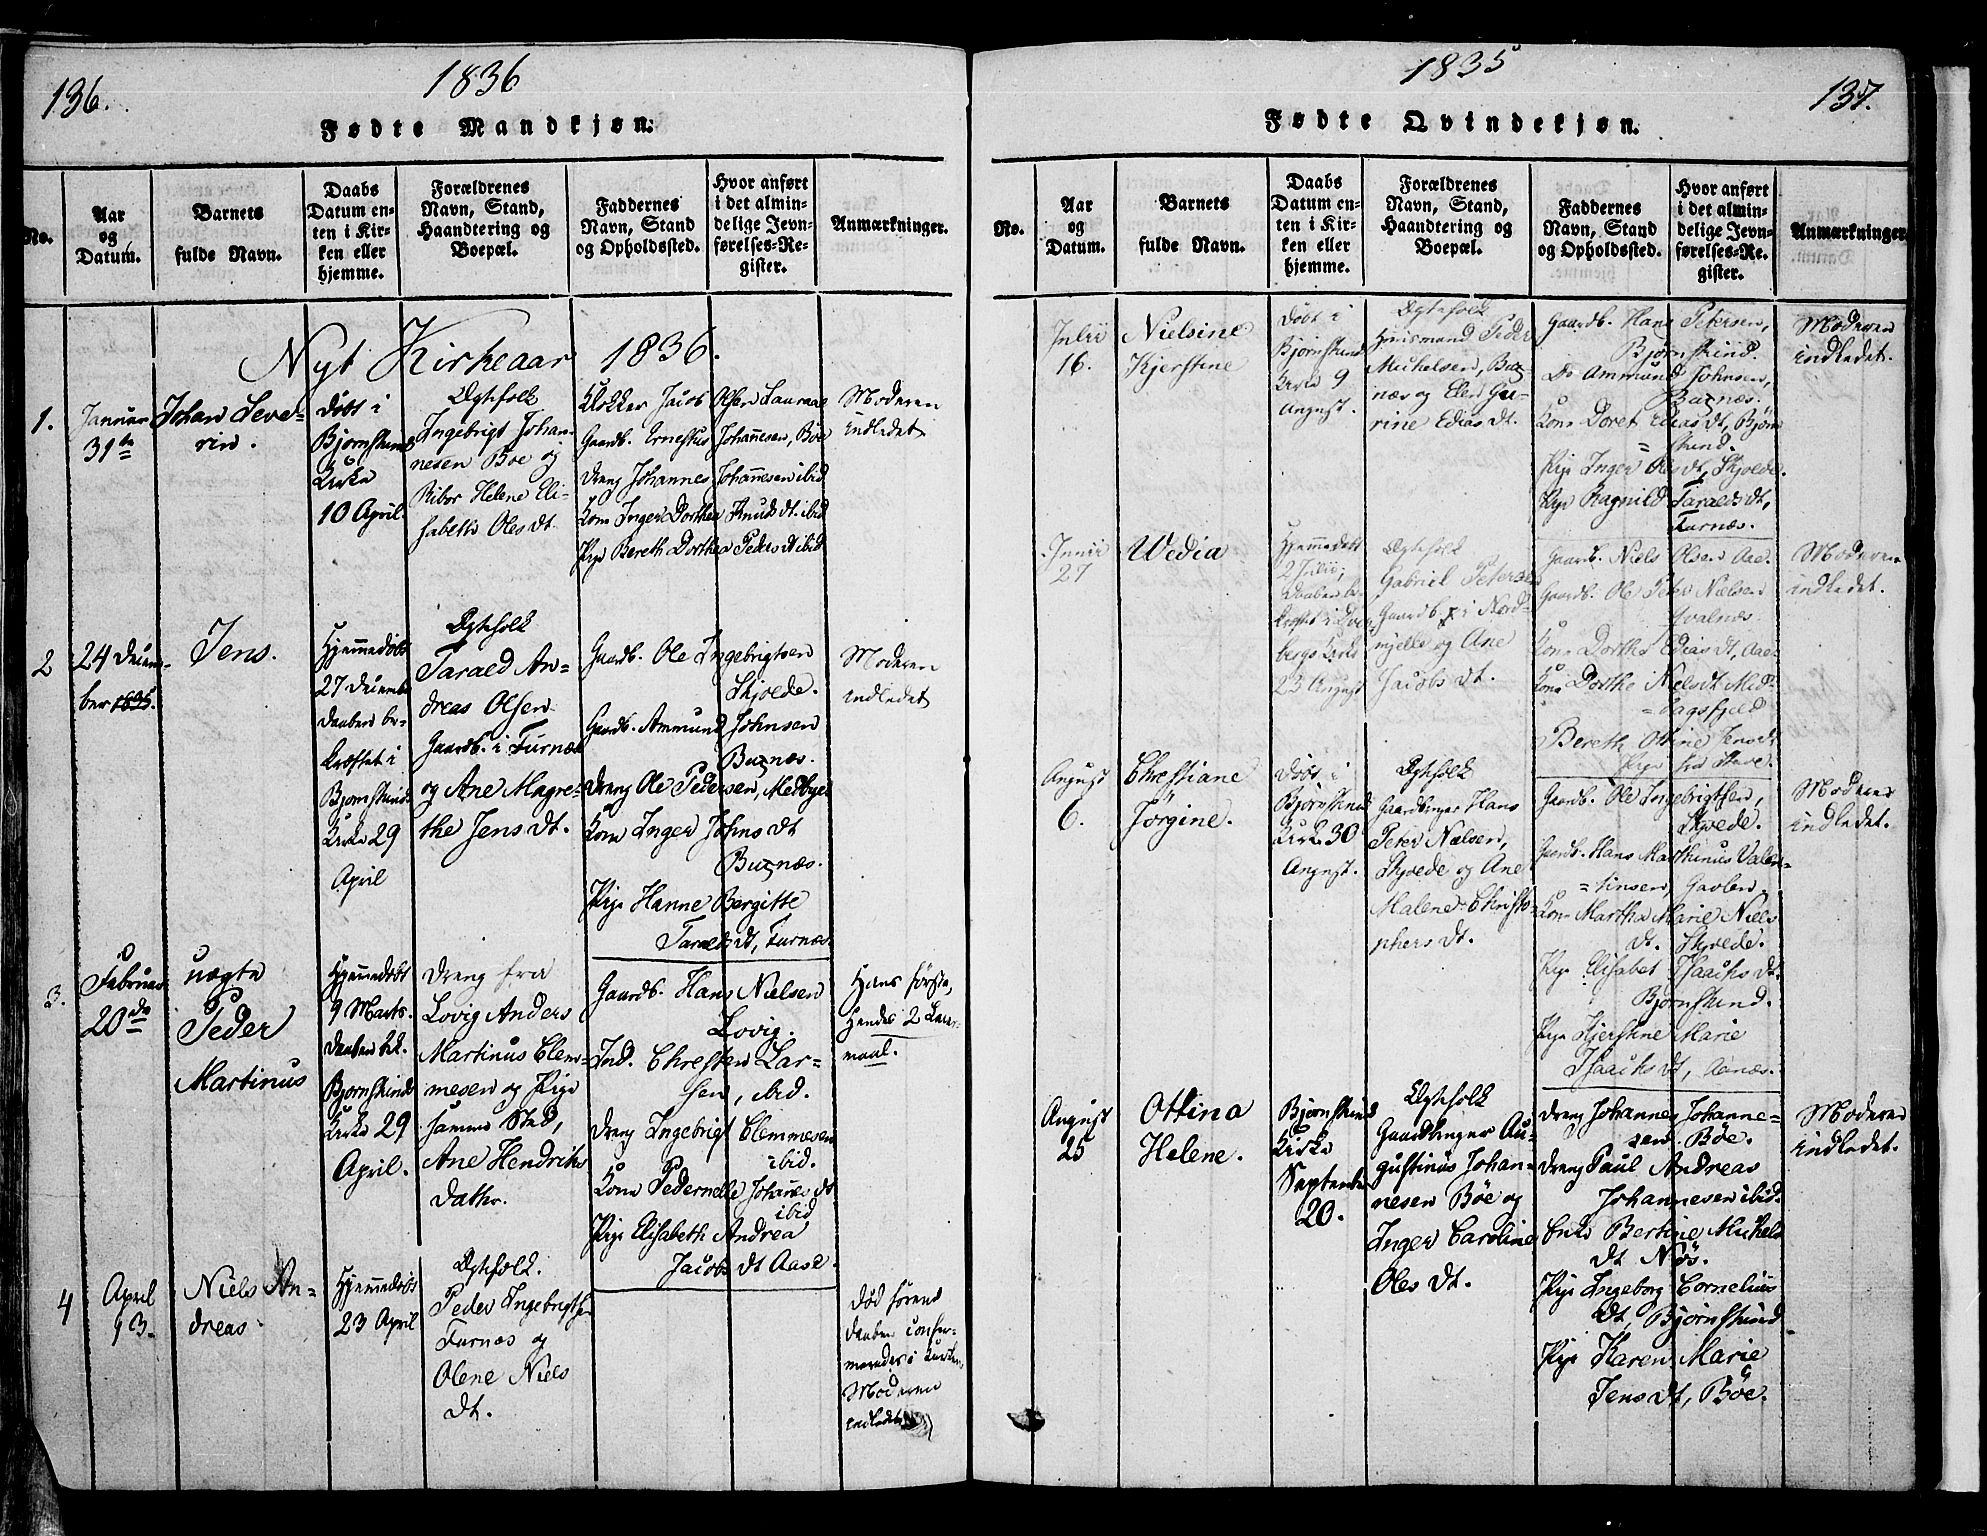 136.
1836
Fødte Mandkjøn.
No.
Aar
og
Datum.
Barnets
fulde Navn.
Daabs
Datum en-
ten i Kir-
ken eller
hjemme.
Forældrenes
Navn, Stand,
Haandtering og
Boepæl.
Faddernes
Navn, Stand
og Opholdssted.
Hvor anført
i det almin-
delige Jevn-
førelses-Re-
gister.
Anmærkninger.
Nyt Kirkeaar 1836.
1.
Januar
31te
Johan Seve-
rin.
Døbt i
Bjørnskinds
Kirke
10 April.
Ægtefolk
Ingebrigt Johan-
nesen Boe og
Ribor Helene Eli-
sabeth Olesdt.
Klokker Jacob Olsen Lauraae
Gaardb. Ernestus Johannesen, Böe
Dreng Johannes Johannesen ibid
Kone Inger Dorthea Knudsdt. ibid
Pige Bereth Dorthea Pedersdt ibid
Moderen
indledet
2
24 Decem-
ber 1835.
Jens.
Hjemmedøbt
27 Decembr
Daaben be-
kræftet i
Bjørnskinds
Kirke 29
April
Ægtefolk
Tarald An-
dreas Olsen
Gaardb. i Furnæs
og Ane Magre-
the Jensdt.
Gaardb. Ole Ingebrigtsen
Skjoede.
Gaardb. Ammund Johnsen
Buxnæs.
Dreng Ole Pedersen, Medbye
Kone Inger Johnsdt
Buxnæs.
Pige Hanne Bergitte
Taraldsdt, Furnæs
Moderen
indledet
3.
Februar
20de
uægte
Peder
Martinus
Hjemmedøbt
9 Marts.
Daaben bek.
Bjørnskinds
Kirke 29
April.
Dreng fra
Lovig Anders
Martinus Clem-
mesen og Pige
samme Sted,
Ane Hendriks
datter.
Gaardb. Hans Nielsen
Lovig.
Ind. Chresten Lar-
sen, ibid.
Dreng Ingebrigt Clemmesen
ibid.
Kone Pedernelle Johannesdt
ibid
Pige Elisabeth Andrea
Jacobsdt Aase.
Hans første,
Hendes 2 Leier-
maal.
4
April
13.
Niels An-
dreas
Hjemmedøbt
23 April
Ægtefolk.
Peder Ingebrigtsen
Furnæs og
Olene Niels
dt.
Død förend
Daaben confir-
meredes i Kirken,
Moderen
indledet
1835
137.
Fødte Qvindekjøn.
No.
Aar
og
Datum.
Barnets
fulde Navn.
Daabs
Datum en-
ten i Kir-
ken eller
hjemme.
Forældrenes
Navn, Stand,
Haandtering og
Boepæl.
Faddernes
Navn, Stand
og Opholdssted.
Hvor anført
i det almin-
delige Jevn-
førelses-Re-
gister.
Anmærkninger
Julii
16.
Nielsine
Kjerstine
Døbt i
Bjørnskind
Kirke 9
August.
Ægtefolk
Huusmand Peder
Michelsen, Bux-
næs og Elen Gu-
rine Ediasdt.
Gaardb. Hans Petersen,
Bjørnskind.
Do Ammund Johnsen,
Buxnæs.
Kone Doret Ediasdt, Bjørn
=skind.
Pige Inger Olesdt, Skjoede.
Pige Ragnild Taraldsdt,
Furnæs.
Moderen
indledet.
Junii
27
Wedia
Hjemmedøbt
2 Julii;
Daaben be-
kræftet i
bergs Kirke
23 August
Ægtefolk
Gabriel Petersen
Gaardb. i Nord-
mjelle og Ane
Jacobsdt.
Gaardb. Niels Olsen Aae-
Gaardb. Ole Peter Nielsen
Hvalnæs.
Kone Dorthe Ediasdt, Aae-
Kone Dorthe Nielsdt Mid-
=dagsfjeld
Bereth Ottine Jensdt
Moderen
indledet.
August
6.
Chrestiane
Jörgine.
Døbt i
Bjørnskinds
Kirke 30
August.
Ægtefolk
Gaardbruger Hans
Peter Nielsen,
Skjoede og Ane
Malene Christo-
phersdt.
Gaardb. Ole Ingebrigtsen,
Skjoede.
Gaardb. Hans Marthinus Valen-
=tinsen, Gavlen
Kone Martha Marie Niels
dt. Skjoede.
Pige Elisabet Isaachsdt
Bjørnskind.
Pige Kjerstine Marie
Isaachsdt, Aanæs.
Moderen
indledet.
August
25
Ottina
Helene.
Bjørnskinds
Kirke
September
20.
Ægtefolk
Gaardbruger Au-
gustinus Johan-
nesen Böe og
Inger Caroline
Olesdt.
Dreng Johannes Johanne-
sen Böe.
Dreng Paul Andreas
Johannesen ibid.
Enke Bertine Michels
dt Nös.
Pige Ingeborg Cornelius
dt, Bjørnskind
Pige Karen Marie
Jensdt, Böe.
Moderen
indledet.